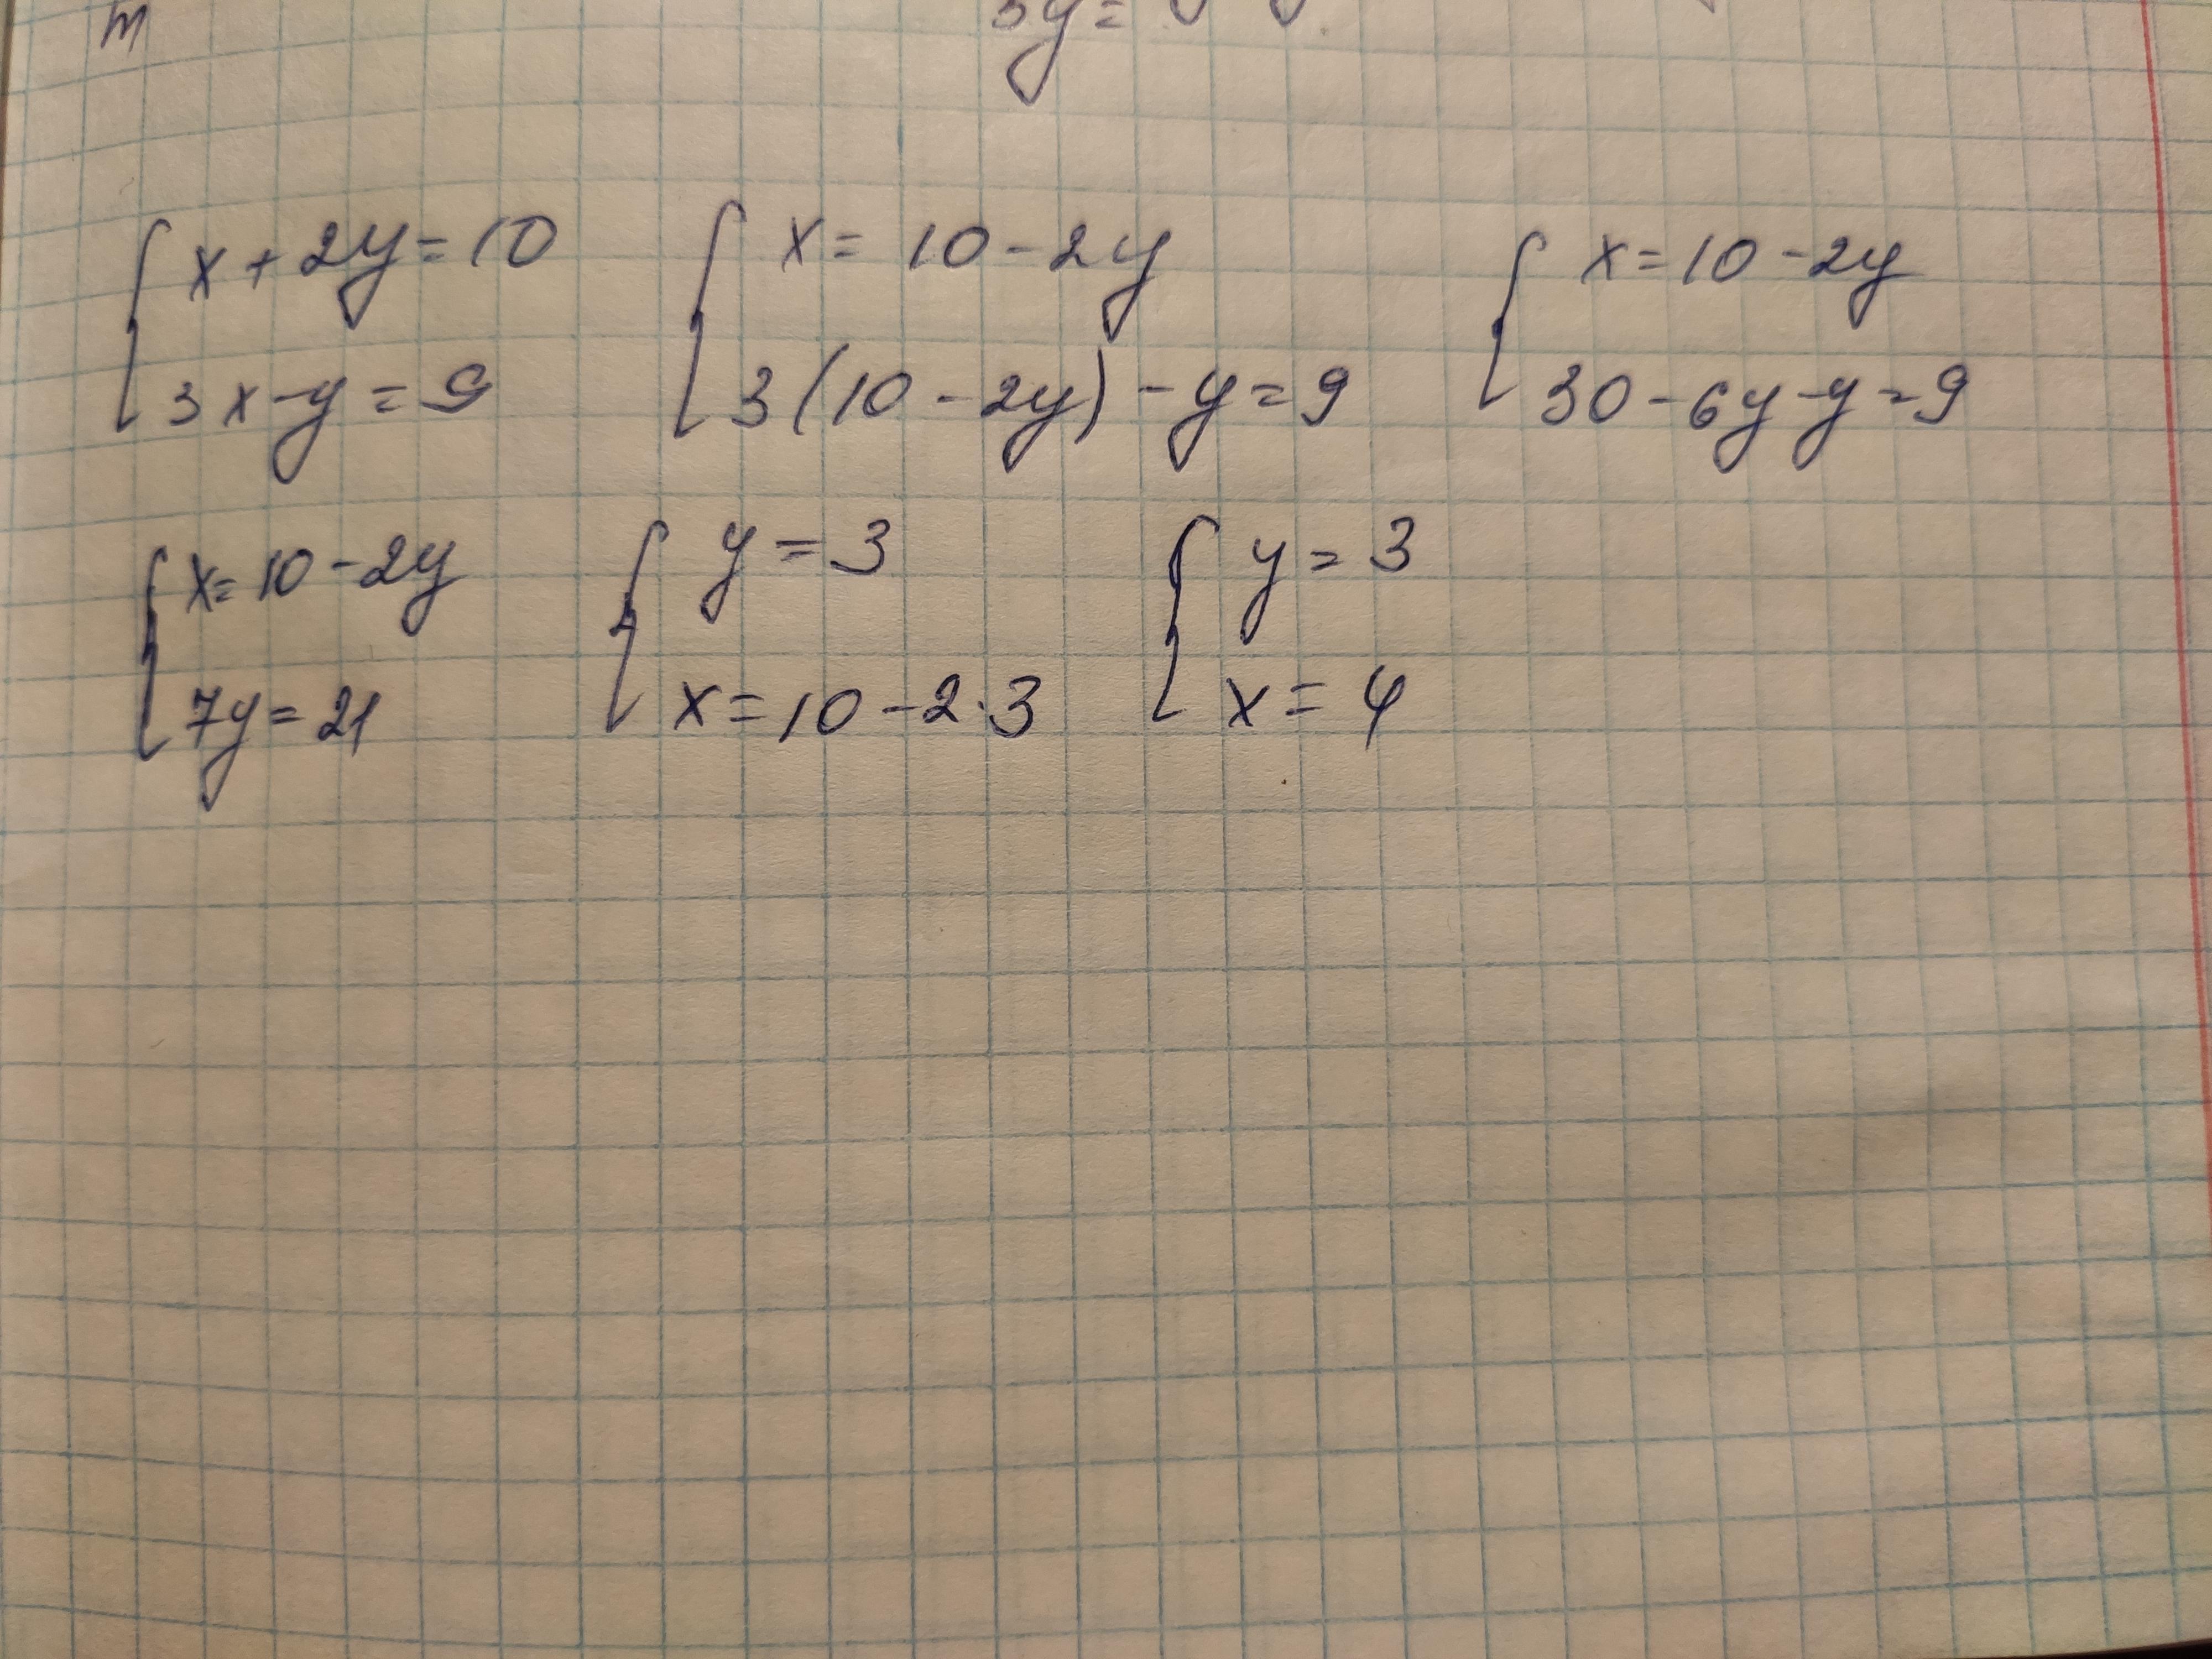 m
3y=
x+2y=10
3x-y=9
x=10-2y
3(10-2y)-y=9
x=10-2y
30-6y-y=9
x=10-2y
7y=21
y=3
x=10-2·3
y=3
x=4